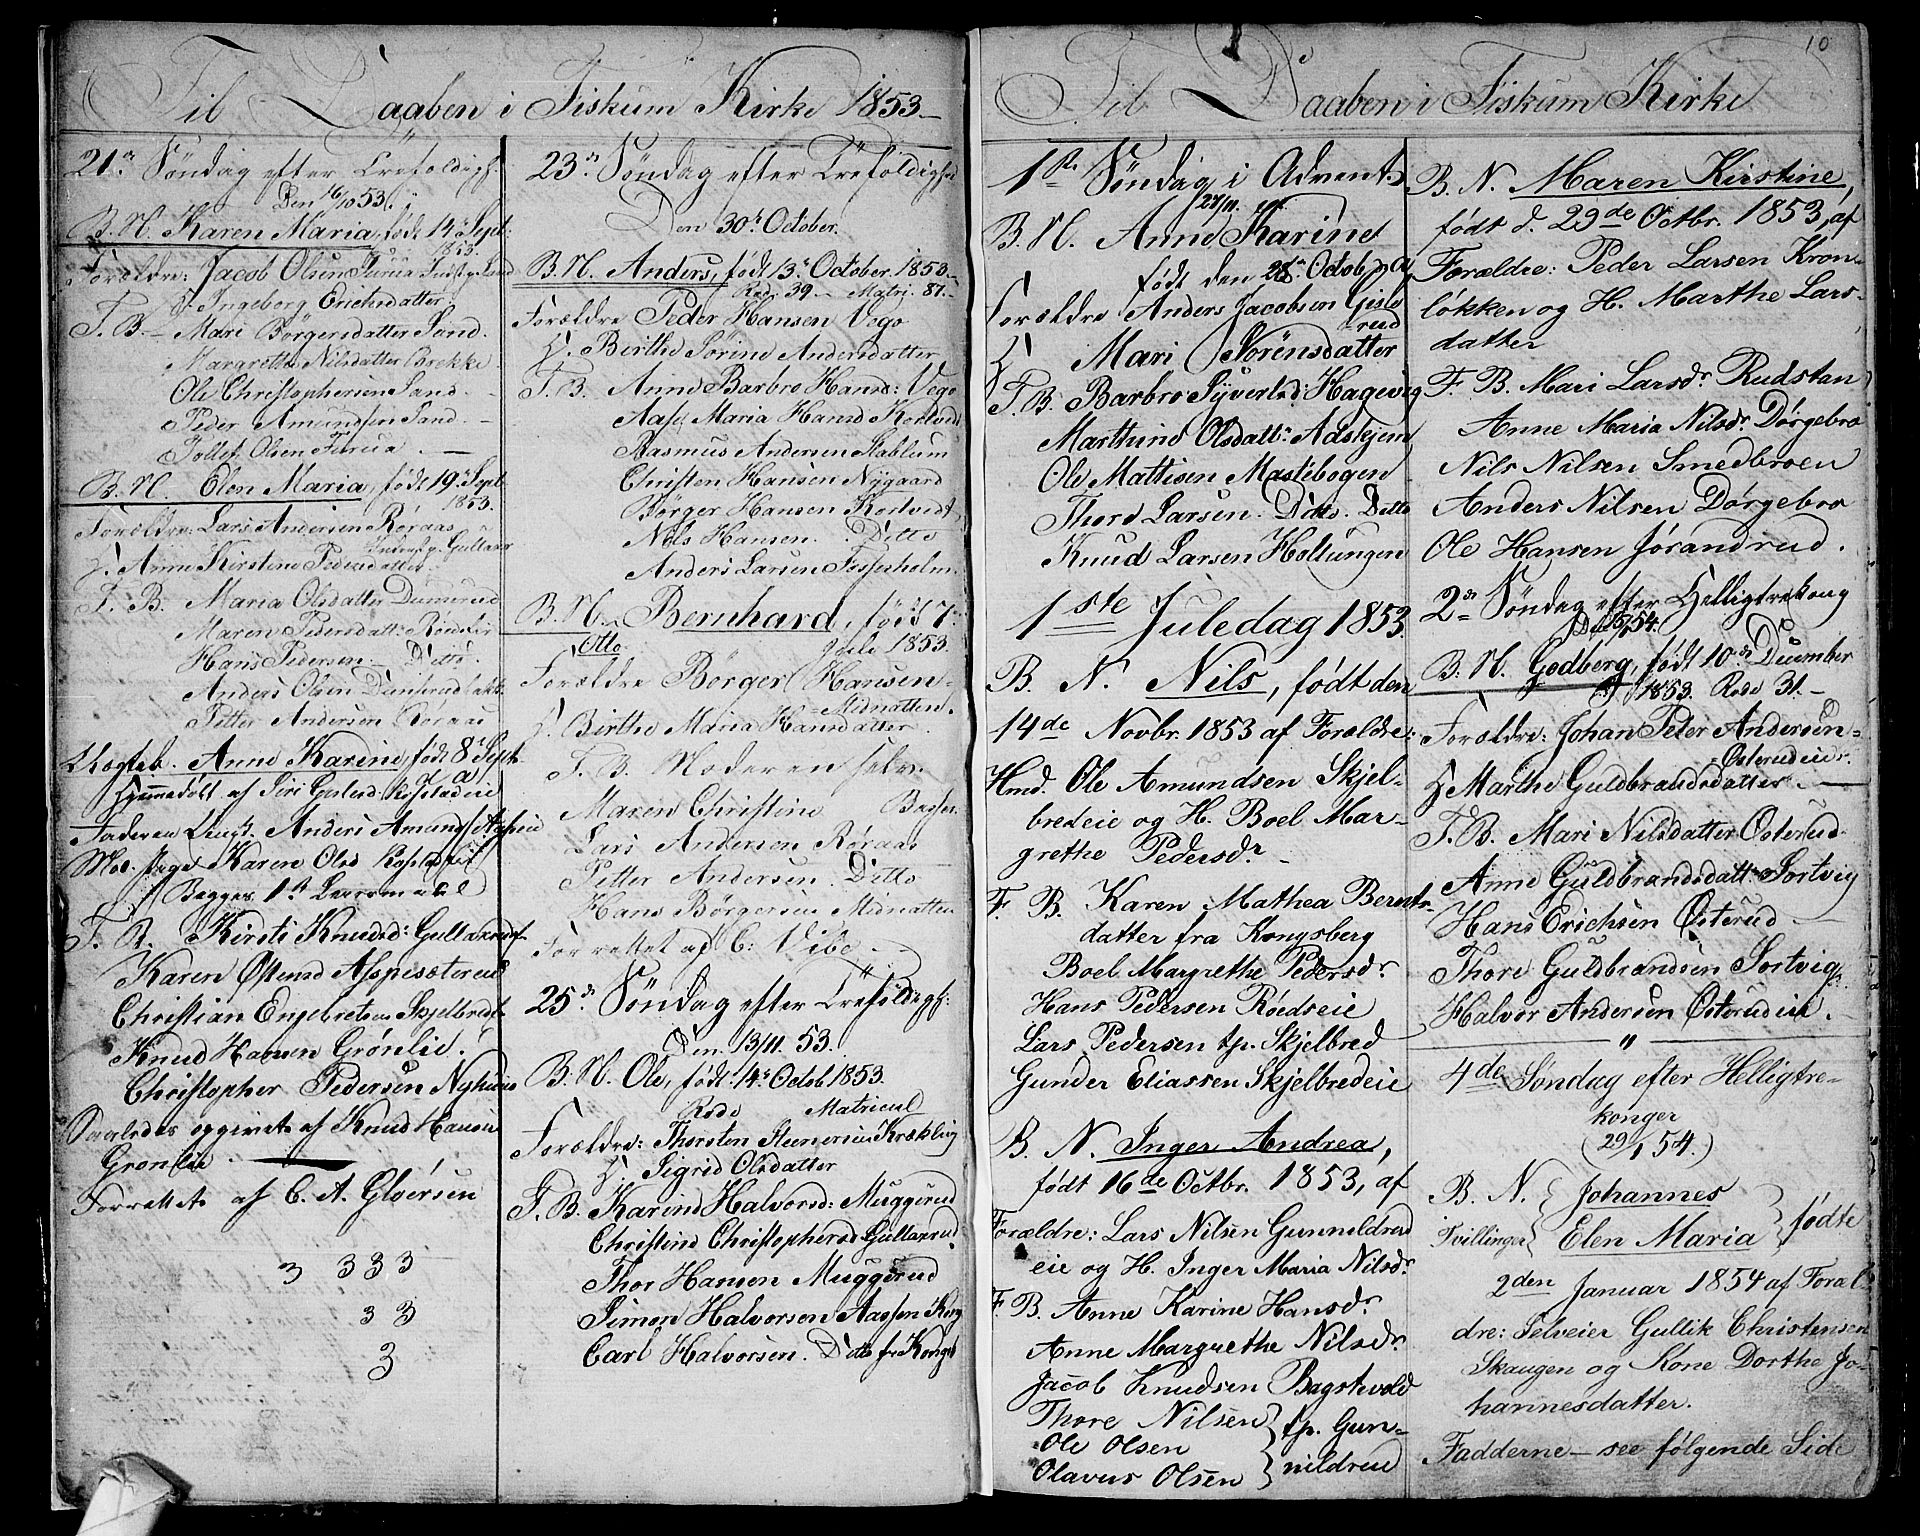 Til Daaben i Fiskum Kirke 1853
21de Søndag efter Trefoldigh:
Den 16/10 53.
B. N. Karen Maria, født 14de Sept:
1853.
Forældre: Jacob Olsen Furua
H. Ingeborg Erichsdatter.
F. B. Mari Børgersdatter Sand.
Margrethe Nilsdatter Brekke
Ole Christophersen Sand
Peder Amundsen Sand
Tollef Olsen Furua
B. N. Elen Maria, født 19de Sept
1853.
Forældre: Lars Andersen Røraas
H. Anne Kirstine Pedersdatter
F. B. Maria Olsdatter Dunserud
Maren Pedersdatt:
Hans Pedersen Ditto.
Anders Olsen Dunserud
Petter Andersen Røraas
Uægteb. Anne Karine, født 8de Sept
Hjemmedøbt af Siri
Faderen Ungk. Anders Amunds
Mod. Pige Karen Olsd
Begges 1ste Leiermaal
F. B. Kirsti Knudsd: Gullaxrud
Karen
Christian Engebretsen Skjelbred
Knud Hansen Grønlie.
Christopher Pedersen
Saaledes opgivet af Knud Hansen
Grønlie.
Forrettet af C. A. Gløersen
3 333
33
3
23de Søndag efter Trefoldighed
Den 30de October.
B. N. Anders, født 13de October 1853.
Rode 39 Matri. 87.
Forældre Peder Hansen Vego
H. Birthe Sørine Andersdatter
F. B. Anne Barbro Hansd: Vego
Aase Maria Hansd
Rasmus Andersen Stablum
Christen Hansen Nygaard
Børger Hansen
Nils Hansen. Ditto
Anders Larsen Fosserholm
B. N. Bernhard, født 7de
Otto Juli 1853.
Forældre Børger Hansen
Midnatten.
H. Birthe Maria Hansdatter.
F. B. Moderen selv.
Maren Christine
Lars Andersen Røraas
Petter Andersen. Ditto
Hans Børgersen Midnatten
Forrettet af C: Vibe
25de Søndag efter Trefoldigh:
Den 13/11. 53.
B. N. Ole, født 14de Octob 1853.
Rode Matricul
Forældre: Thorsten Steenersen Krækling
H. Sigrid Olsdatter
F. B. Karine Halvorsd: Muggerud
Christine Christophersd Gullaxrud
Thor Hansen Muggerud
Simon Halvorsen Aassen
Carl Halvorsen. Ditto
10
Til Daaben i Fiskum Kirke
1ste Søndag i Advent
27/11.
B. N. Anne Karine
født den 28de Octob
Forældre Anders Jacobsen Gisle
rud
H. Mari Sørensdatter
F. B. Barbro Syversd: Hagevig
Marthine Olsdatt: Adskjem
Ole Mattisen Mastebogen
Thore Larsen. Ditto. Ditto
Knud Larsen Holtungen
1ste Juledag 1853.
B. N. Nils, født den
14de Novbr. 1853 af Forældre:
Hmd. Ole Amundsen Skjel-
bredeie og H. Boel Mar-
grethe Pedersdr.
F. B. Karen Mathea Bernt-
datter fra Kongsberg
Boel Margrethe Pedersdr.
Hans Pedersen Rødseie
Lars Pedersen tp. Skjelbred
Gunder Eliassen Skjelbredeie
B. N. Inger Andrea,
født 16de Octbr. 1853, af
Forældre: Lars Nilsen Gunnildrud
eie og H. Inger Maria Nilsdr.
F. B. Anne Karine Hansdr.
Anne Margrethe Nilsdr.
Jacob Knudsen Bagstvold
Thore Nilsen } tp. Gun-
Ole Olsen
Olavus Olsen } nildrud
B. N. Maren Kirstine,
født d. 29de Octbr. 1853, af
Forældre: Peder Larsen Kron-
løkken og H. Marthe Lars-
datter
F. B. Mari Larsdr. Rudstan
Anne Maria Nilsdr. Dørgebro
Nils Nilsen Smedbroen
Anders Nilsen Dørgebro
Ole Hansen Jørandrud.
2den Søndag efter Helligtrekong
Den 15/1 54.
B. N. Godberg, født 10de December
1853. Rode 31.
Forældre: Johan Peter Andersen
Østerudeier.
H Marthe Guldbrandsdatter.
F. B. Mari Nilsdatter Østerud
Anne Guldbrandsdatt: Sortvig
Hans Erichsen Østerud
Thore Guldbrandsen Sortvig
Halvor Andersen Østerudeie.
4de Søndag efter Helligtre-
konger
(29/1 54.)
B. N. { Johannes
Tvillinger { Elen Maria } fødte
2den Januar 1854 af Foræl-
dre: Selveier Gullik Christensen
Skaugen og Kone Dorthe Jo-
hannesdatter.
Fadderne – see følgende Side